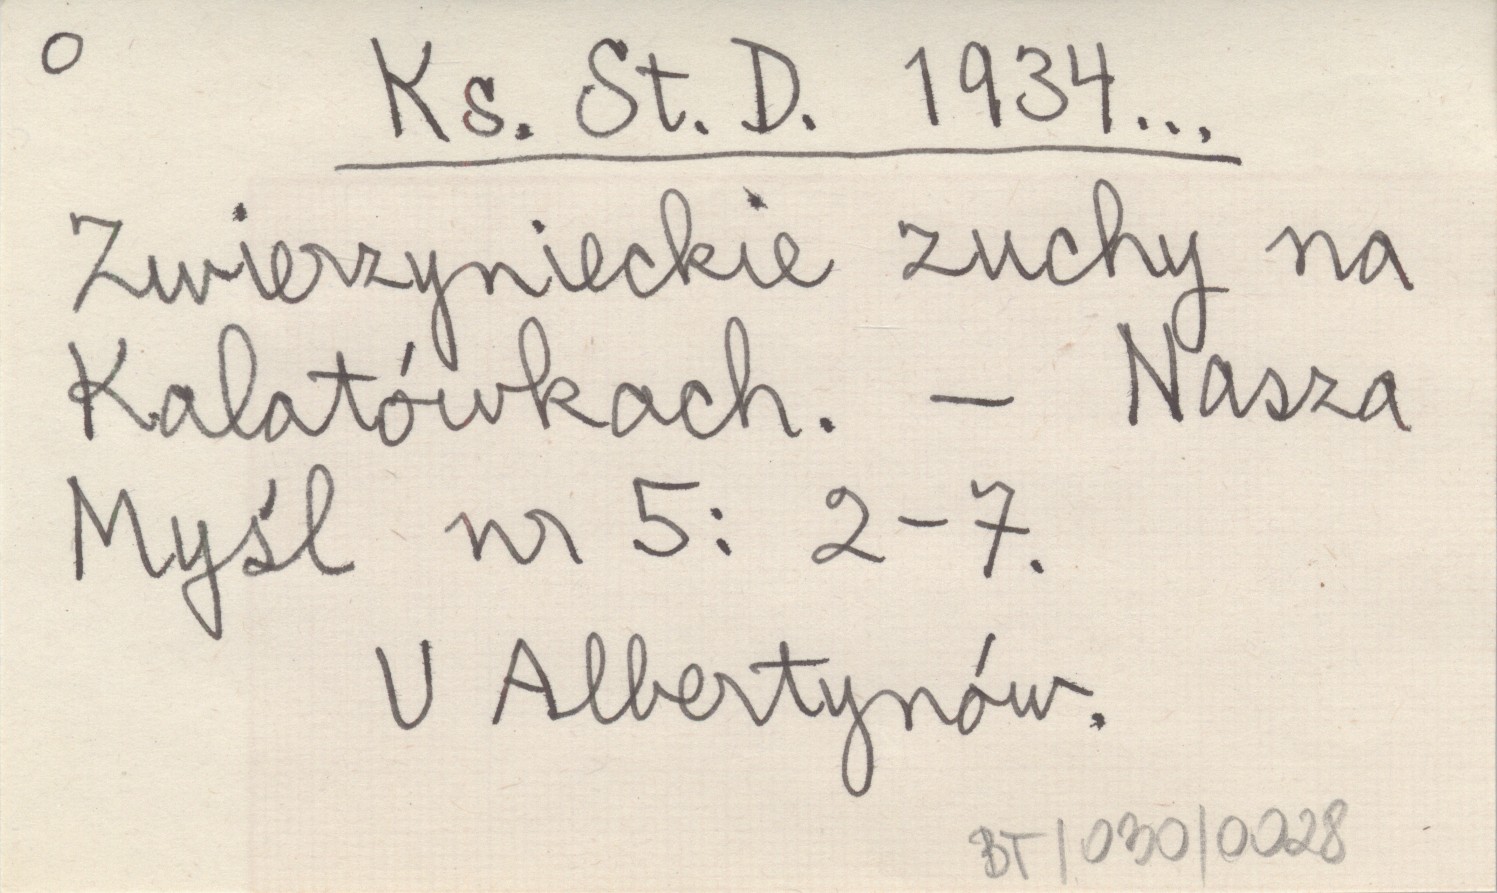 O
Ks. St. D. 1934...
Zwierzynieckie zuchy na
Kalatówkach. – Nasza
Myśl nr 5: 2–7.
U Albertynów.
BT/030/0028